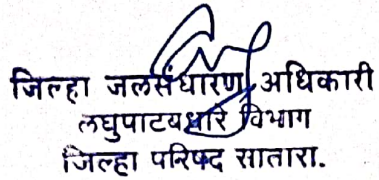 जिल्हा जलसंधारण अधिकारी
लघुपाटबंधारे विभाग
जिल्हा परिषद सातारा.